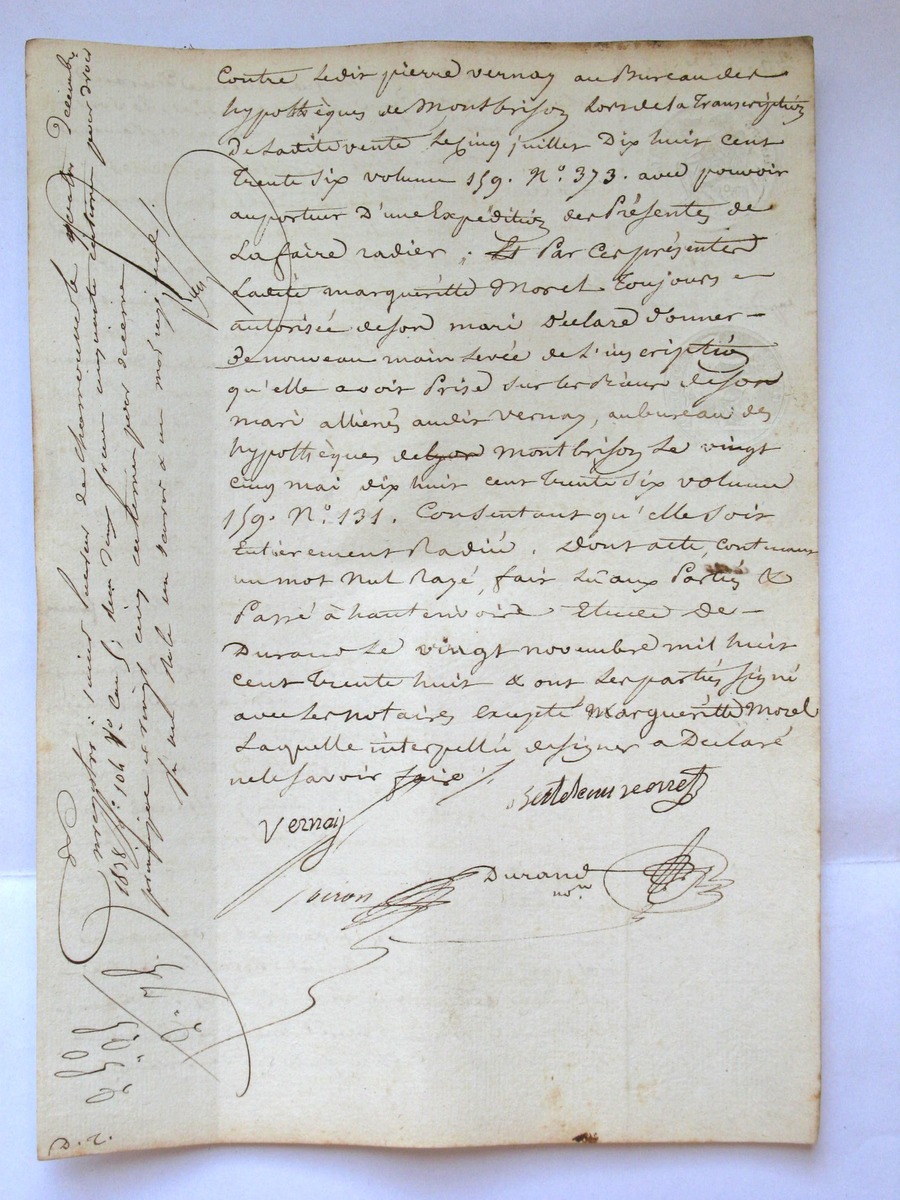 Contre Ledit pierre vernay au Bureau des
hypothèques de Montbrison Lors de la Transcription
De Ladite vente Le Cinq juillet Dix huit cent
trente six volume 159. N.º 373. avec pouvoir
au porteur D'une Expédition des Présentes de
La faire radier. Par Ces présentes
Ladite margueritte Morel Toujours
autorisée de son mari Déclare donner
De nouveau main Levée de L'inscription
qu'elle avoit Prise sur les Biens de son
mari alliénés audit Vernay, au bureau des
hypothèques de Lyon montbrison Le vingt
Cinq mai dix huit cent Trente Six volume
159. N.º 131. Consentant qu'elle soit
Entièrement Radiée. Dont acte, contenant
un mot Nul Rayé, fait Lu aux Parties &
Passé à hautenvoire Etude de
Durand Le vingt novembre mil huit
cent trente huit & ont Les parties signé
avec Les notaires Excepté Margueritte Morel
Laquelle interpellée de signer a Déclaré
ne le savoir faire
Vernay
Durand
no.re
Enregistré à Saint du decembre
1838 f.º 104 V.º Cen 5; deux francs cinquante centimes pour droit
principal et vingt cinq centimes pour décime
un mot rayé nul
D. 2.